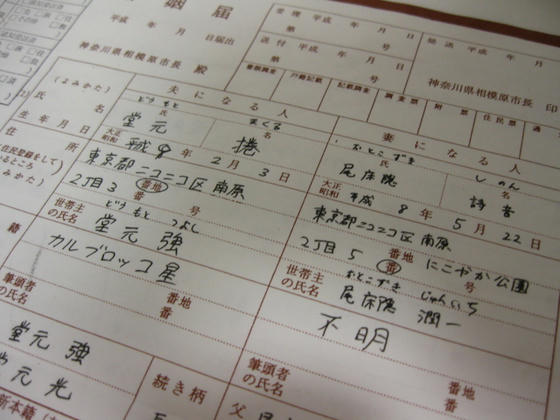 婚届
平成 年 月 日届出
神奈川県相模原市長 殿
受理 平成 年 月 日
第 号
送付 平成 年 月 日
第 号
発送 平成 年 月
神奈川県相模原市長 印
書類調査 戸籍記載 記載調査 調査票 附票 住民票 通
夫になる人
妻になる人
(よみかた)
どうもと まくる
おとこずき しのん
氏 名
氏 名
氏名
堂元 捲
尾床隠 詩音
生年月日
大正 昭和 平成 8年 2月 3日
大正 昭和 平成 8年 5月 22日
住所
東京都ニコニコ区南原
2丁目3 番地 番 号
東京都ニコニコ区南原
2丁目5 番地 番 号 にこやか公園
世帯主の氏名
どうもと つよし
堂元 強
世帯主の氏名
おとこずき じゅんいち
尾床隠 潤一
籍
カルブロッコ星
番地 番
不明
番地 番
筆頭者の氏名
筆頭者の氏名
堂元 強
元 光
続き柄
父
新本籍